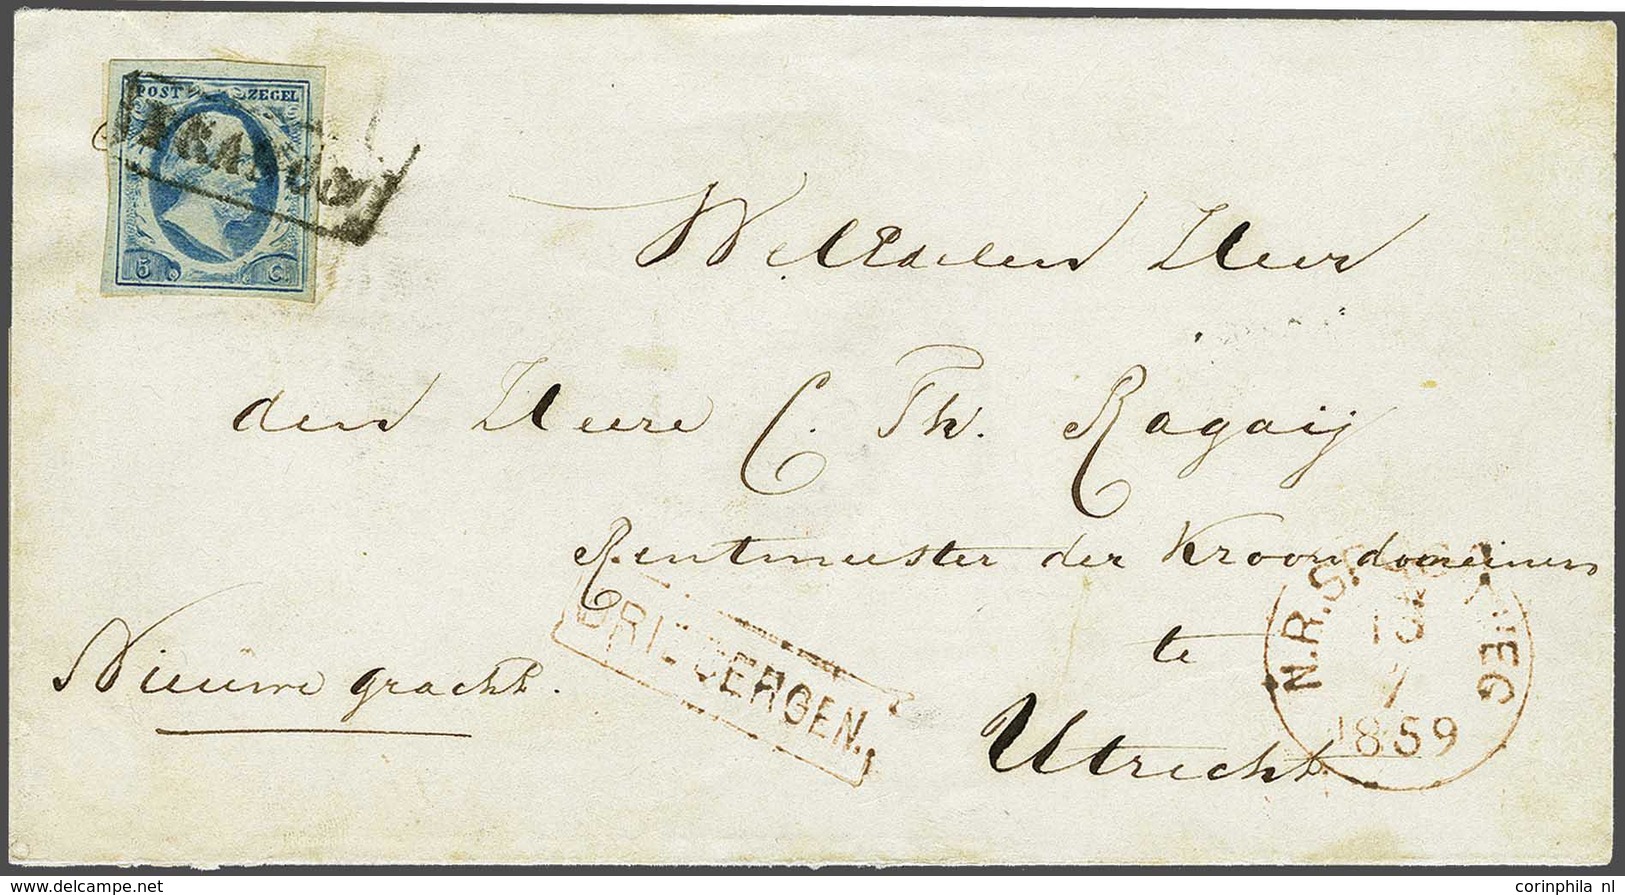 POST ZEGEL
FRANCO
5 C.
WelEdelen Heer
den Heere C. Th. Ragaij
Rentmeester der Kroondomeinen
te
Utrecht
Nieuwe gracht.
DRIEBERGEN.
N.R.S.
1859
www.delcampe.net
corinphila nl